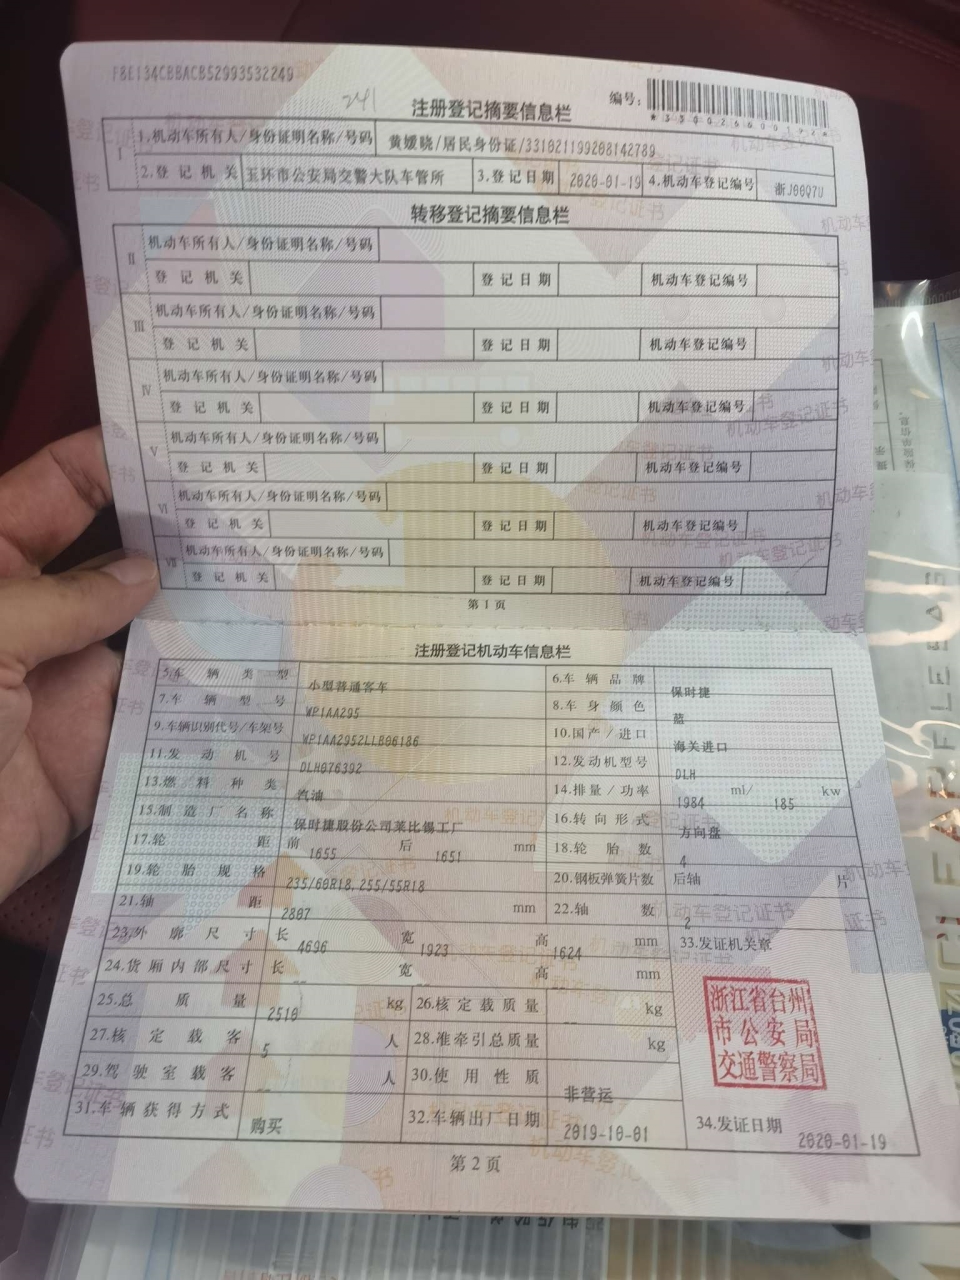 FBE134CBBACB52993532249
241
注册登记摘要信息栏
编号:
I
1.机动车所有人/身份证明名称/号码 黄媛晓/居民身份证/331021199208142789
2.登记机关 玉环市公安局交警大队车管所 3.登记日期 2020-01-19 4.机动车登记编号 浙J00Q7U
转移登记摘要信息栏
II 机动车所有人/身份证明名称/号码
登记机关 登记日期 机动车登记编号
III 机动车所有人/身份证明名称/号码
登记机关 登记日期 机动车登记编号
IV 机动车所有人/身份证明名称/号码
登记机关 登记日期 机动车登记编号
V 机动车所有人/身份证明名称/号码
登记机关 登记日期 机动车登记编号
VI 机动车所有人/身份证明名称/号码
登记机关 登记日期 机动车登记编号
VII 机动车所有人/身份证明名称/号码
登记机关 登记日期 机动车登记编号
第1页
注册登记机动车信息栏
5.车辆类型 小型普通客车 6.车辆品牌 保时捷
7.车辆型号 WP1AA295 8.车身颜色 蓝
9.车辆识别代号/车架号 WP1AA2952LLB06186 10.国产/进口 海关进口
11.发动机号 DLH076392 12.发动机型号 DLH
13.燃料种类 汽油 14.排量/功率 1984 ml/ 185 kw
15.制造厂名称 保时捷股份公司莱比锡工厂 16.转向形式 方向盘
17.轮距 前 1655 后 1651 mm 18.轮胎数 4
19.轮胎规格 235/60R18,255/55R18 20.钢板弹簧片数 后轴 片
21.轴距 2807 mm 22.轴数 2
23.外廓尺寸 长 4696 宽 1923 高 1624 mm 33.发证机关章
24.货厢内部尺寸 长 -- 宽 -- 高 -- mm
25.总质量 2510 kg 26.核定载质量 -- kg
27.核定载客 5 人 28.准牵引总质量 kg
29.驾驶室载客 -- 人 30.使用性质 非营运
31.车辆获得方式 购买 32.车辆出厂日期 2019-10-01 34.发证日期 2020-01-19
浙江省台州
市公安局
交通警察局
第2页